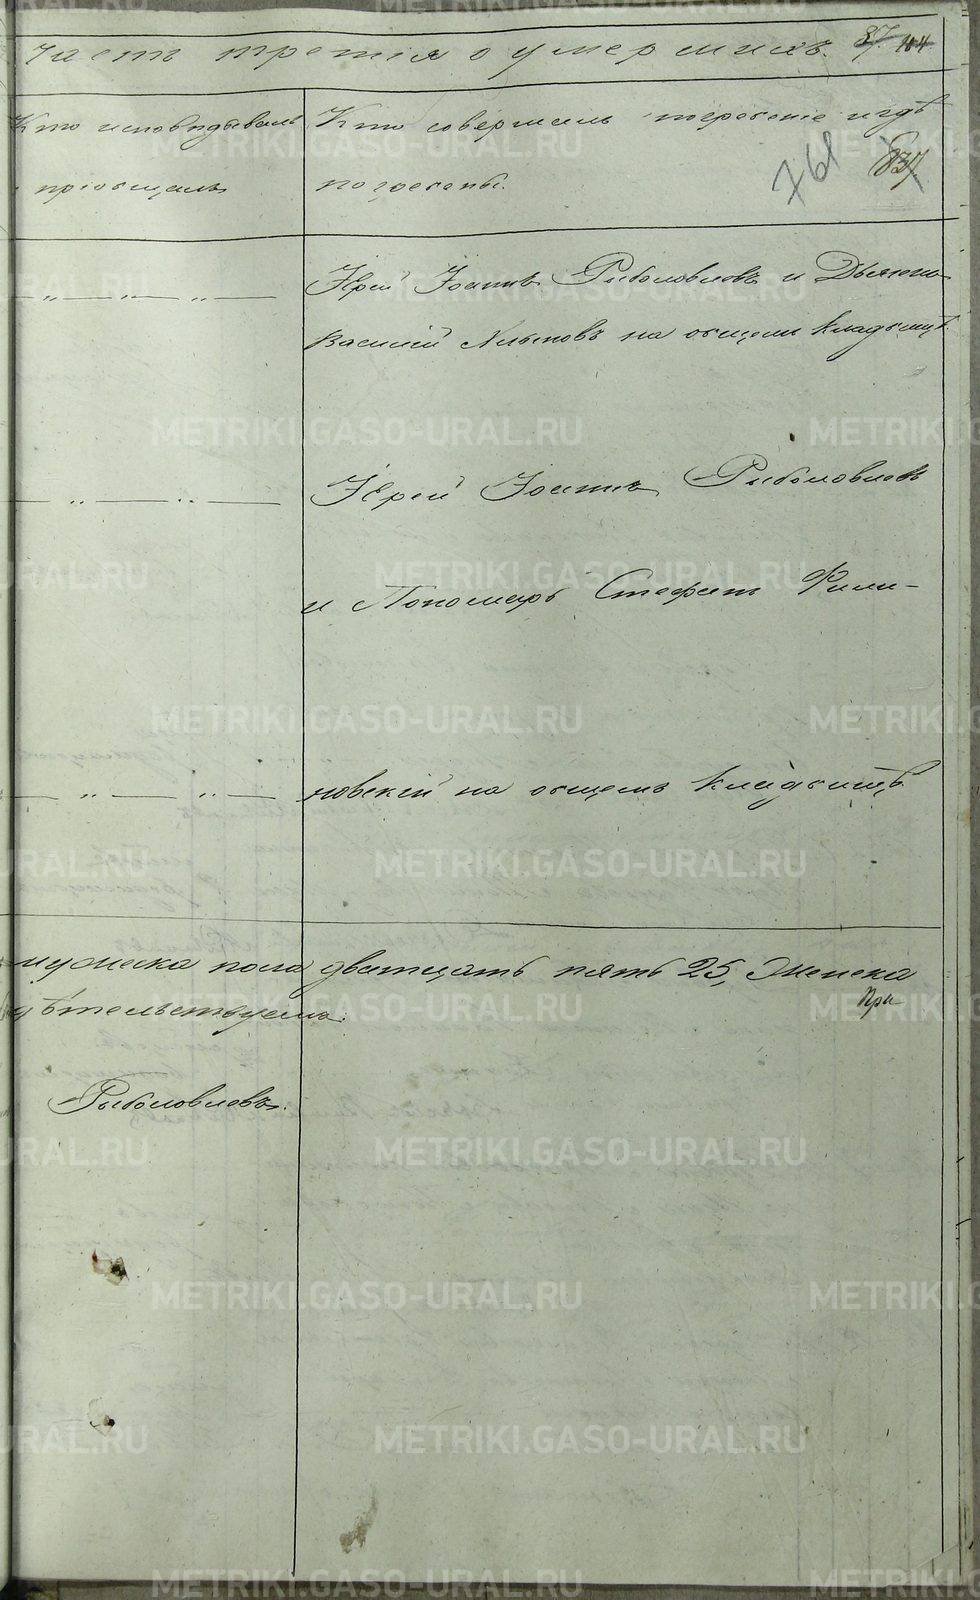 часть третія о умершихъ. 87 104
Кто исповѣдывалъ
и пріобщалъ
Кто совершалъ погребеніе и гдѣ
погребены.
761 837
Іерей Іоаннъ Рыболовлевъ и Дьяконъ
Василій на общемъ кладбищѣ
Іерей Іоаннъ Рыболовлевъ
и Пономарь Стефанъ Фили-
новскій на общемъ кладбищѣ
мужеска пола дватцать пять 25, Женска
При
дѣтельствуемъ.
Рыболовлевъ.
METRIKI.GASO-URAL.RU